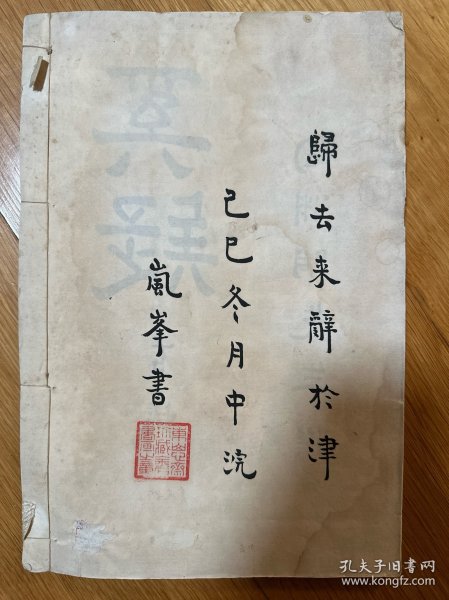 歸去来辭於津
己巳冬月中浣
嵐峯書
孔夫子旧书网
www.kongfz.com